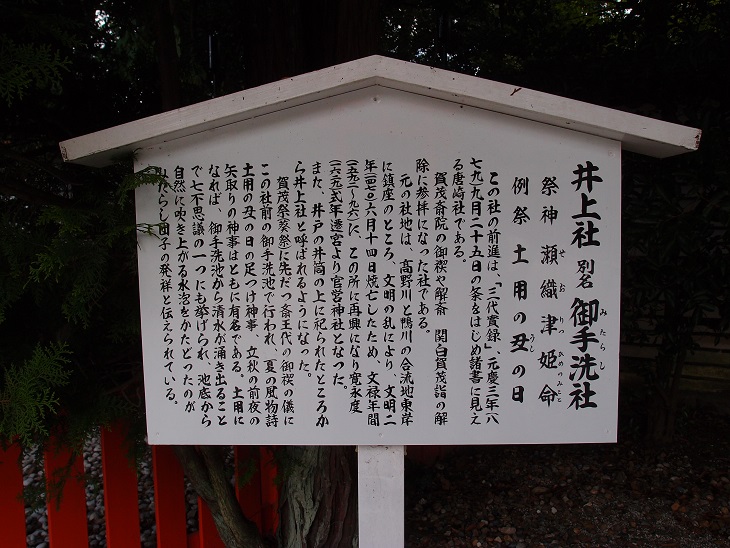 井上社 別名 御手洗社
みたらし
祭神 瀬織津姫命
せおりつひめのみこと
例祭 土用の丑の日
うし
この社の前進は、「三代實録」元慶三年(八
七九)九月二十五日の条をはじめ諸書に見え
る唐崎社である。
賀茂斎院の御禊や解斎 関白賀茂詣の解
除に参拝になった社である。
元の社地は、高野川と鴨川の合流地東岸
に鎮座のところ、文明の乱により、文明二
年(一四七〇)六月十四日焼亡したため、文禄年間
(一五九二〜九六)に、この所に再興になり寛永度
(一六二九)式年遷宮より官営神社となった。
また、井戸の井筒の上に祀られたところか
ら井上社と呼ばれるようになった。
賀茂祭(葵祭)に先だつ斎王代の御禊の儀に
この社前の御手洗池で行われ、夏の風物詩
土用の丑の日の足つけ神事、立秋の前夜の
矢取りの神事はともに有名である。土用に
なれば、御手洗池から清水が湧き出ること
で七不思議の一つにも挙げられ、池底から
自然に吹き上がる水泡をかたどったのが
みたらし団子の発祥と伝えられている。